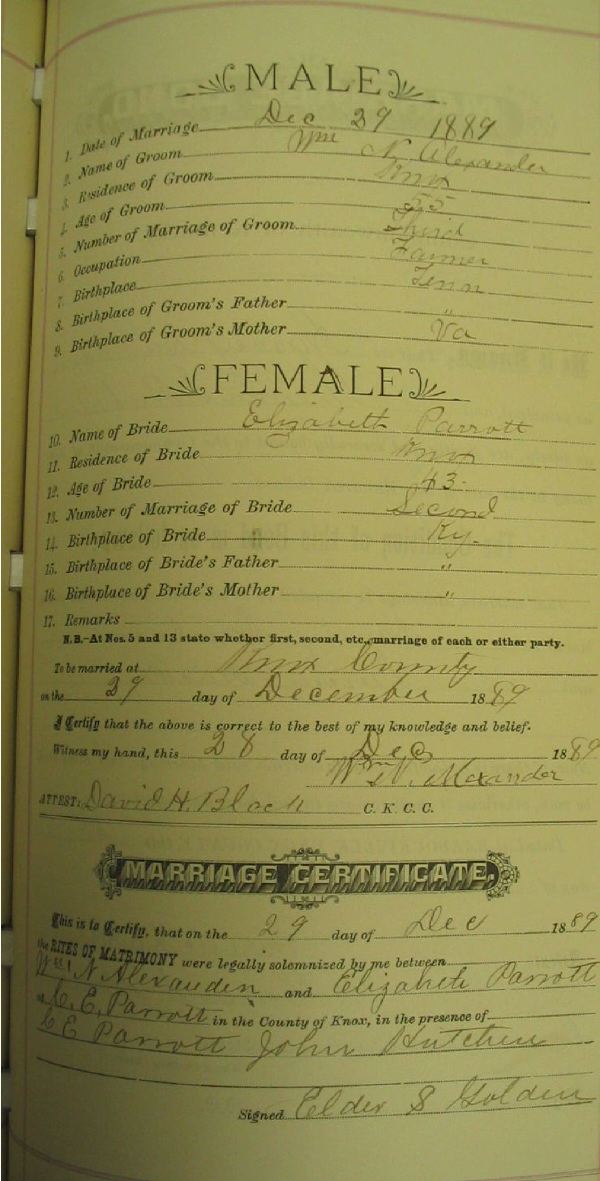 MALE
1. Date of Marriage Dec 29 1889
2. Name of Groom Wm N. Alexander
3. Residence of Groom Knox
4. Age of Groom 55
5. Number of Marriage of Groom Third
6. Occupation Farmer
7. Birthplace Tenn
8. Birthplace of Groom's Father "
9. Birthplace of Groom's Mother Va
FEMALE
10. Name of Bride Elizabeth Parrott
11. Residence of Bride Knox
12. Age of Bride 43
13. Number of Marriage of Bride Second
14. Birthplace of Bride Ky.
15. Birthplace of Bride's Father "
16. Birthplace of Bride's Mother "
17. Remarks
N.B.-At Nos. 5 and 13 state whether first, second, etc., marriage of each or either party.
To be married at Knox County
on the 29 day of December 1889
I Certify that the above is correct to the best of my knowledge and belief.
Witness my hand, this 28 day of Dec 1889
Wm N. Alexander
ATTEST: David H. Black C. K. C. C.
MARRIAGE CERTIFICATE.
This is to Certify, that on the 29 day of Dec 1889
the RITES OF MATRIMONY were legally solemnized by me between
Wm N Alexander and Elizabete Parrott
at C. E. Parrott in the County of Knox, in the presence of
C E Parrott John Hutchen
Signed Elder S Golden